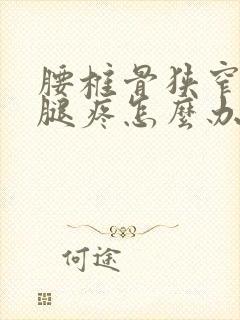 腰椎骨狭窄
腿疼怎麼办
何途